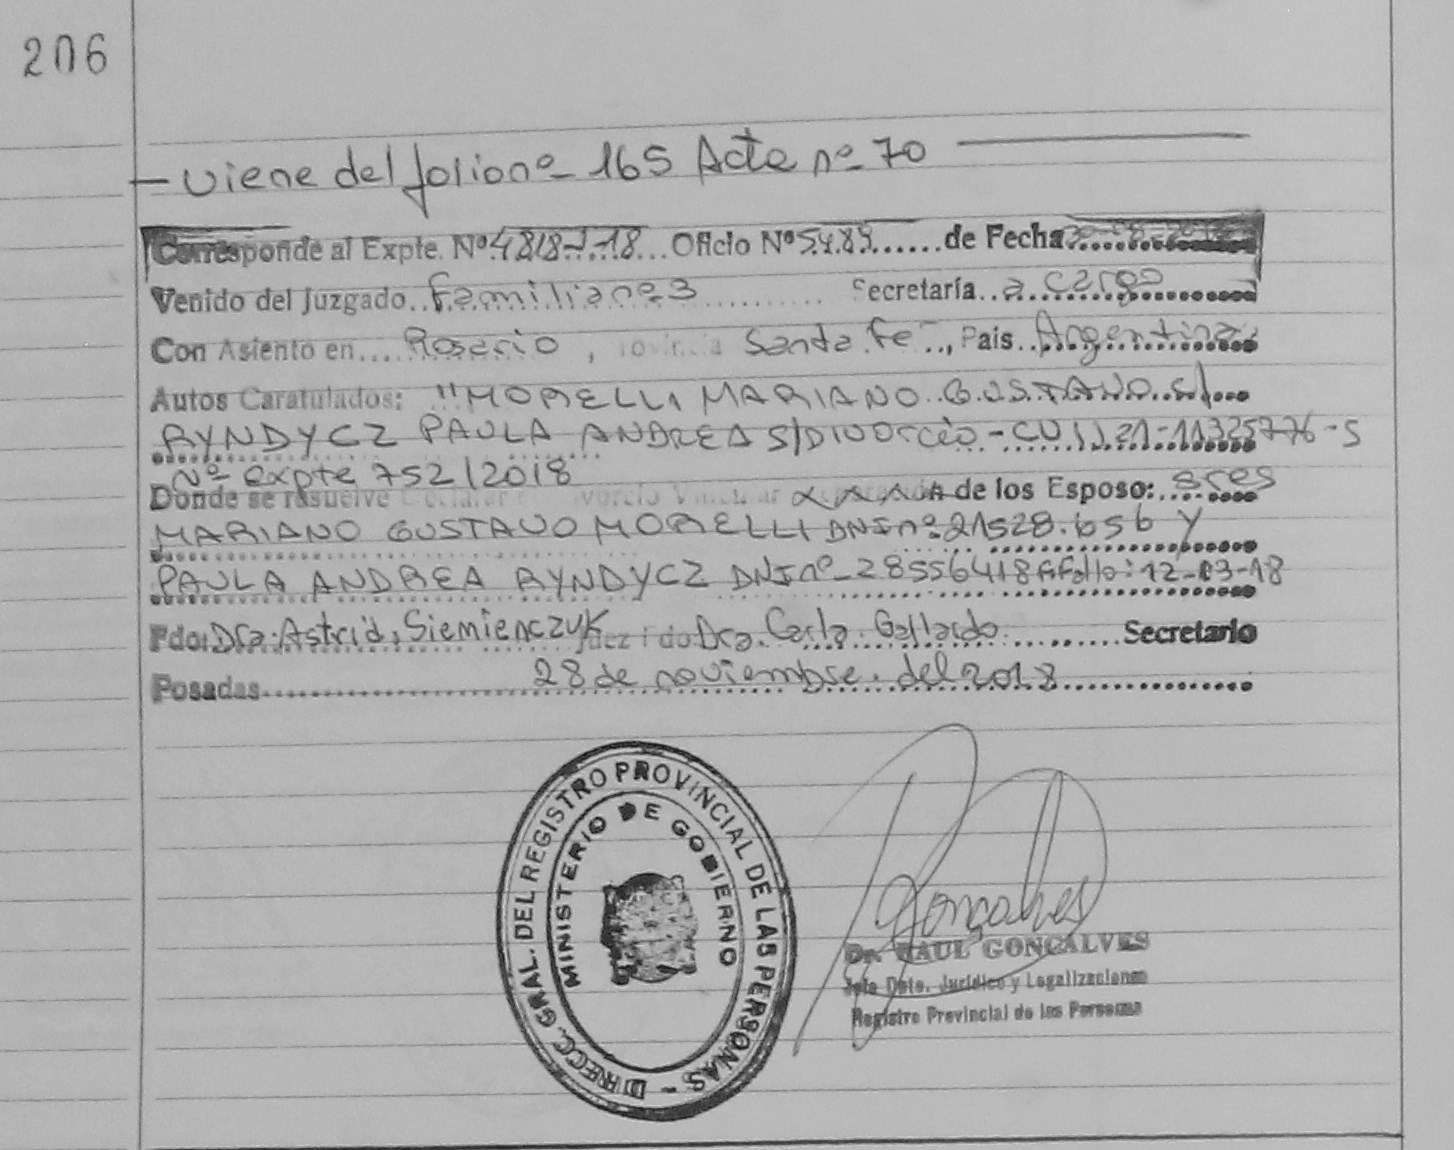 206
- viene del folio nº 165 Acta nº 70
Corresponde al Expte. Nº 4818-J-18... Oficio Nº 5489...... de Fecha
Venido del Juzgado.. familia nº 3 .......... Secretaría.. a cargo
Con Asiento en.... Rosario, rovincia Santa fe.., Pais.. Argentina
Autos Caratulados: "MORELLI MARIANO GUSTAVO c/
RYNDYCZ PAULA ANDREA S/DIVORCIO - CUIJ 21-11325776-5
Nº expte 752/2018
Donde se resuelve Declarar el vorcio Vincular xxxxx de los Esposo: sres
MARIANO GUSTAVO MORELLI DNI nº 21528.656 y
PAULA ANDREA RYNDYCZ DNI nº 28556418 f.fallo: 12-03-18
Fdo: Dra. Astrid, Siemienczuk Juez Fdo Dra. Carla. Gallardo ........ Secretario
Posadas.......... 28 de noviembre. del 2018
DIRECC. GRAL. DEL REGISTRO PROVINCIAL DE LAS PERSONAS -
MINISTERIO DE GOBIERNO
Gonçalves
Dr. RAUL GONCALVES
Jefe Dpto. Jurídico y Legalizaciones
Registro Provincial de las Personas